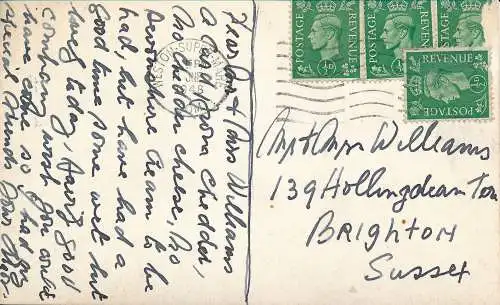 Dear Mr & Mrs Williams
A Card from Cheddar,
No Cheddar cheese, No
Devonshire Cream to be
had, but have had a
good time some wet but
lovely today, Having good
company wish you could
have come so, had my
special friends
WESTON-SUPER-MARE
POSTAGE
REVENUE
POSTAGE
REVENUE
POSTAGE
REVENUE
REVENUE
POSTAGE
Mr & Mrs Williams
139 Hollingdean Terr
BRIGHTON
Sussex